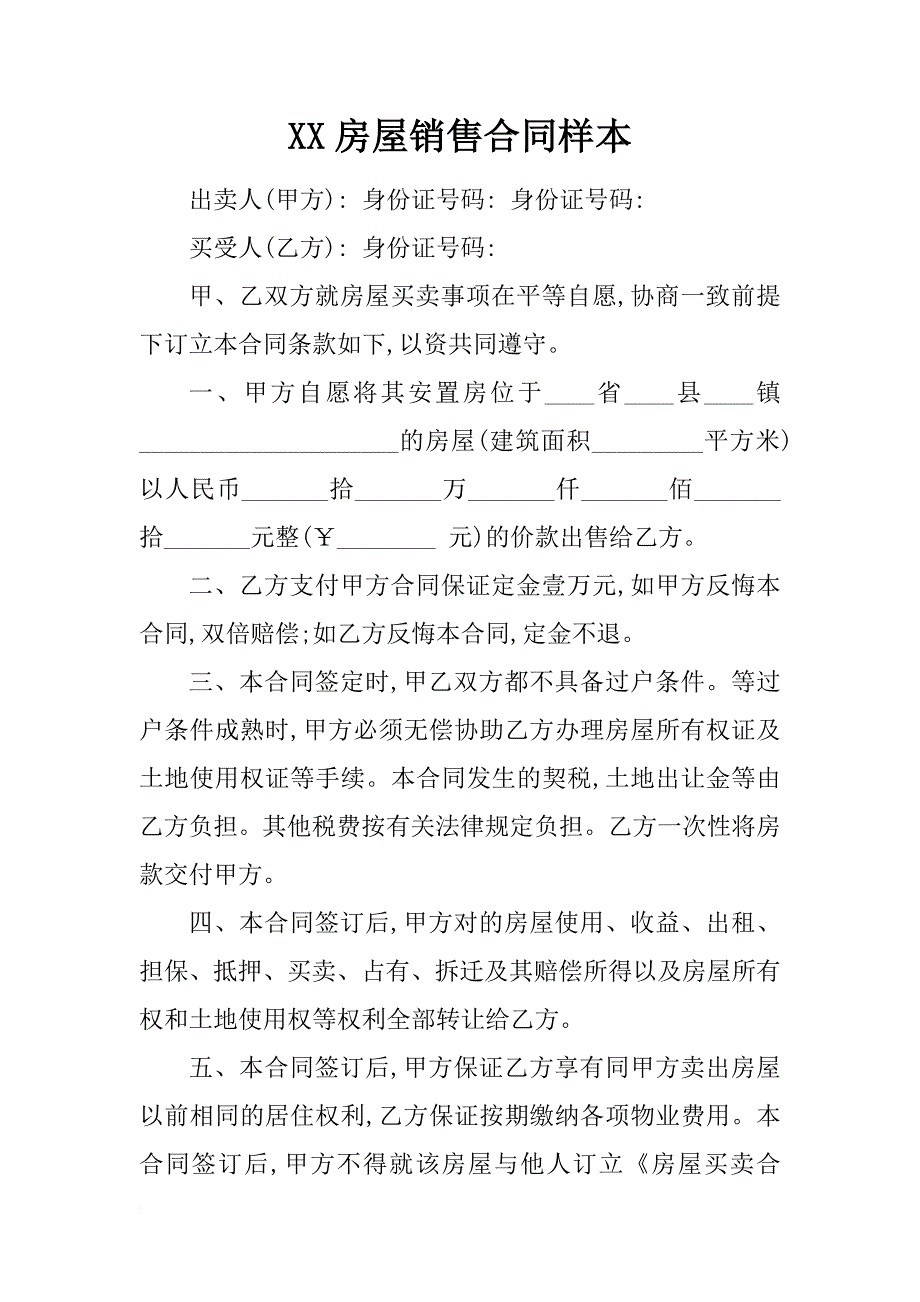 XX 房屋销售合同样本
出卖人(甲方): 身份证号码: 身份证号码:
买受人(乙方): 身份证号码:
甲、乙双方就房屋买卖事项在平等自愿,协商一致前提
下订立本合同条款如下,以资共同遵守。
一、甲方自愿将其安置房位于____省____县____镇
_____________________的房屋(建筑面积_________平方米)
以人民币_______拾_______万_______仟_______佰_______
拾_______元整(￥________ 元)的价款出售给乙方。
二、乙方支付甲方合同保证定金壹万元,如甲方反悔本
合同,双倍赔偿;如乙方反悔本合同,定金不退。
三、本合同签定时,甲乙双方都不具备过户条件。等过
户条件成熟时,甲方必须无偿协助乙方办理房屋所有权证及
土地使用权证等手续。本合同发生的契税,土地出让金等由
乙方负担。其他税费按有关法律规定负担。乙方一次性将房
款交付甲方。
四、本合同签订后,甲方对的房屋使用、收益、出租、
担保、抵押、买卖、占有、拆迁及其赔偿所得以及房屋所有
权和土地使用权等权利全部转让给乙方。
五、本合同签订后,甲方保证乙方享有同甲方卖出房屋
以前相同的居住权利,乙方保证按期缴纳各项物业费用。本
合同签订后,甲方不得就该房屋与他人订立《房屋买卖合